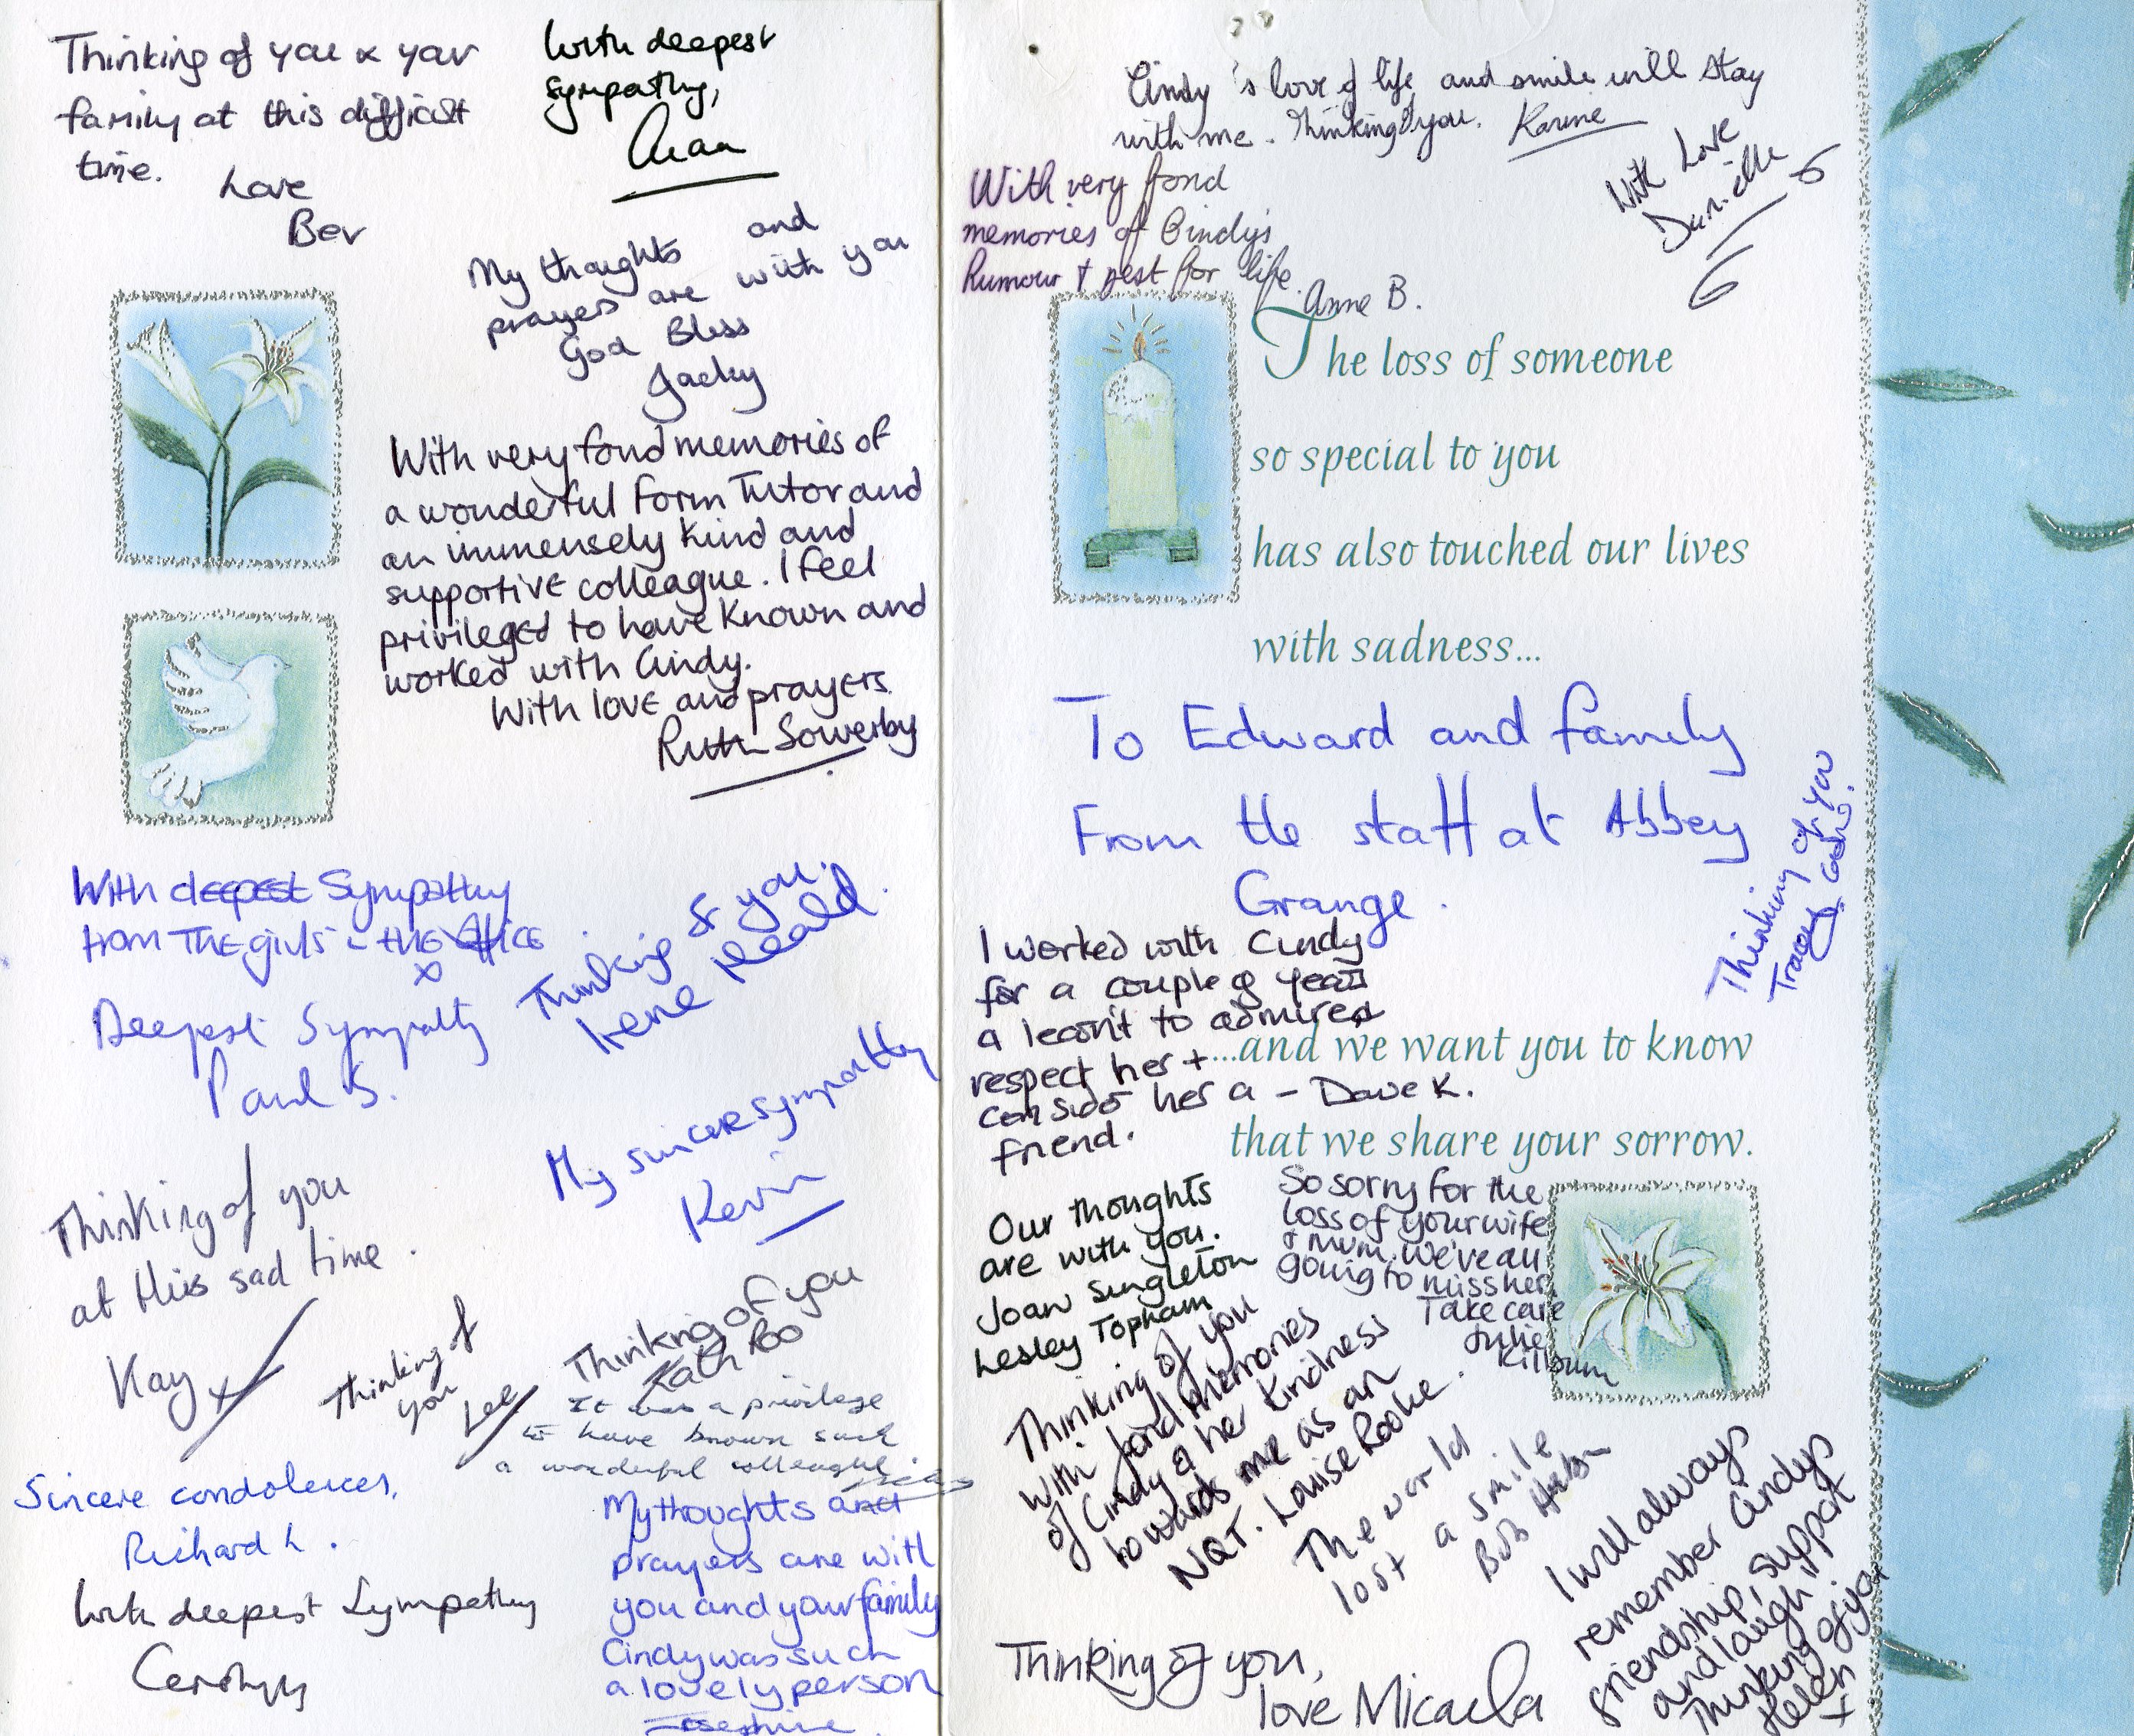 Thinking of you & your
family at this difficult
time.
Love
Bev
With deepest
sympathy,
My thoughts and
prayers are with you
God Bless
Jacky
With very fond memories of
a wonderful Form Tutor and
an immensely kind and
supportive colleague. I feel
privileged to have known and
worked with Cindy.
With love and prayers
Ruth Sowerby
With deepest Sympathy
from The girls in the office
x
Thinking of you.
Irene Heald.
Deepest Sympathy
Paul S.
My sincere sympathy
Kevin
Thinking of you
at this sad time.
Kay x
Thinking of
you
Lee
Thinking of you
Kath Roo
It was a privilege
to have known such
a wonderful colleague
Sincere condolences,
Richard L.
With deepest Sympathy
Carolyn
My thoughts and
prayers are with
you and your family
Cindy was such
a lovely person
Cindy's love of life and smile will stay
with me. Thinking of you. Karine
With Love
Danielle
With very fond
memories of Cindy's
humour & zest for life.
Anne B.
The loss of someone
so special to you
has also touched our lives
with sadness...
To Edward and family
From the staff at Abbey
Grange.
Thinking of you
Tracey
I worked with Cindy
for a couple of years
& learnt to admire &
respect her +
consider her a - Dave K.
friend.
...and we want you to know
that we share your sorrow.
Our thoughts
are with you.
Joan Singleton
Lesley Topham
So sorry for the
loss of your wife
& mum. We've all
going to miss her.
Take care
Julie
Kilburn
Thinking of you
with fond memories
of Cindy & her kindness
towards me as an
NQT. Louise Rooke.
The world
lost a smile
Bob
I will always
remember Cindys
friendship, support
and laugh
Thinking of you
Helen
x
Thinking of you,
love Micaela